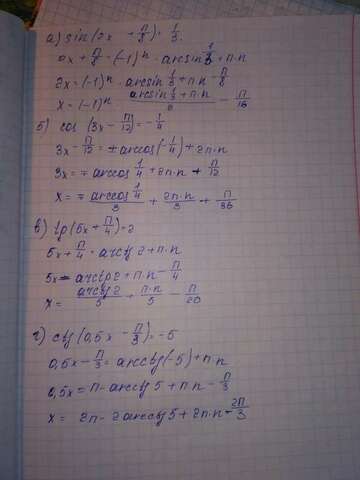 а) sin(2x + π/8) = 1/3.
2x + π/8 = (-1)ⁿ · arcsin 1/3 + π·n
2x = (-1)ⁿ · arcsin 1/3 + π·n - π/8
x = (-1)ⁿ · (arcsin 1/3 + π·n)/2 - π/16
б) cos (3x - π/12) = -1/4
3x - π/12 = ± arccos(-1/4) + 2π·n
3x = ∓ arccos 1/4 + 2π·n + π/12
x = ∓ (arccos 1/4)/3 + 2π·n/3 + π/36
в) tg(5x + π/4) = 2
5x + π/4 = arctg 2 + π·n
5x = arctg 2 + π·n - π/4
x = (arctg 2)/5 + π·n/5 - π/20
г) ctg(0,5x - π/3) = -5
0,5x - π/3 = arcctg(-5) + π·n
0,5x = π - arcctg 5 + π·n - π/3
x = 2π - 2arcctg 5 + 2π·n - 2π/3